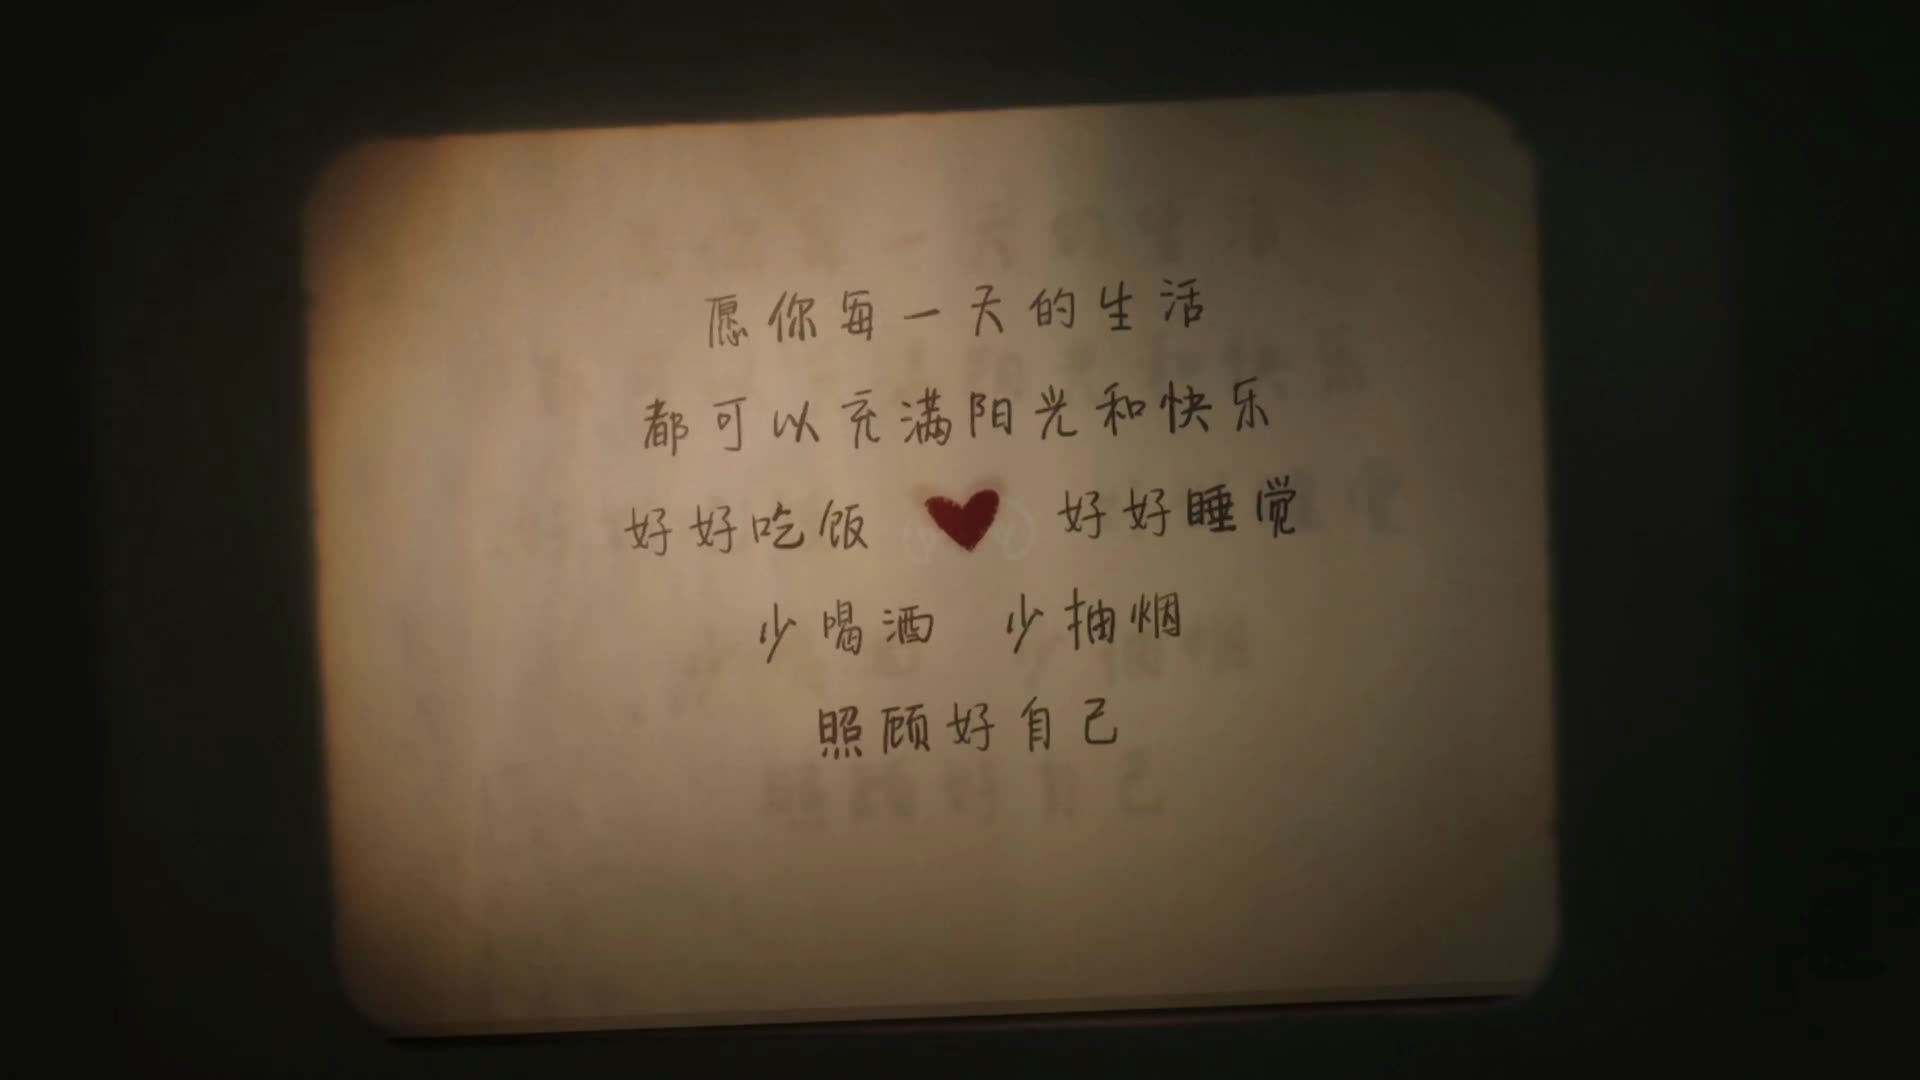 愿你每一天的生活
都可以充满阳光和快乐
好好吃饭 好好睡觉
少喝酒 少抽烟
照顾好自己